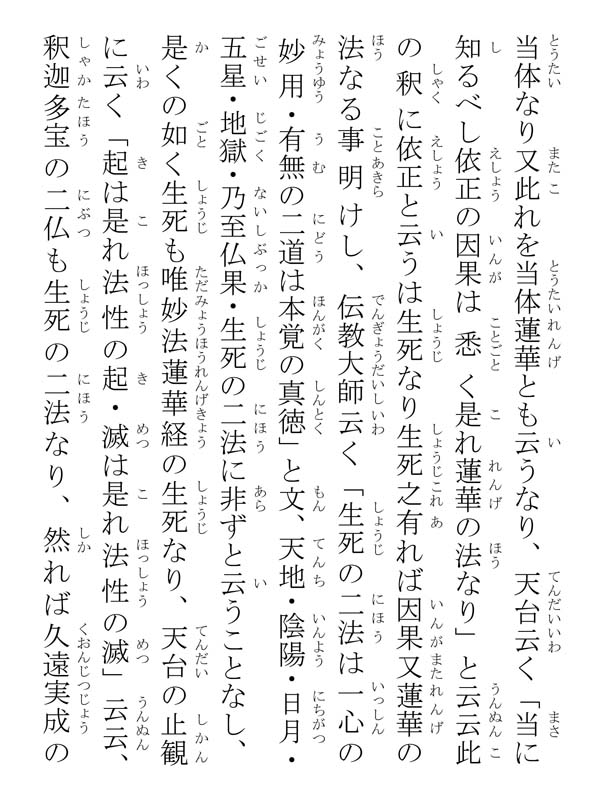 当体なり又此れを当体蓮華とも云うなり、天台云く「当に
知るべし依正の因果は悉く是れ蓮華の法なり」と云云此
の釈に依正と云うは生死なり生死之有れば因果又蓮華の
法なる事明けし、伝教大師云く「生死の二法は一心の
妙用・有無の二道は本覚の真徳」と文、天地・陰陽・日月・
五星・地獄・乃至仏果・生死の二法に非ずと云うことなし、
是くの如く生死も唯妙法蓮華経の生死なり、天台の止観
に云く「起は是れ法性の起・滅は是れ法性の滅」云云、
釈迦多宝の二仏も生死の二法なり、然れば久遠実成の